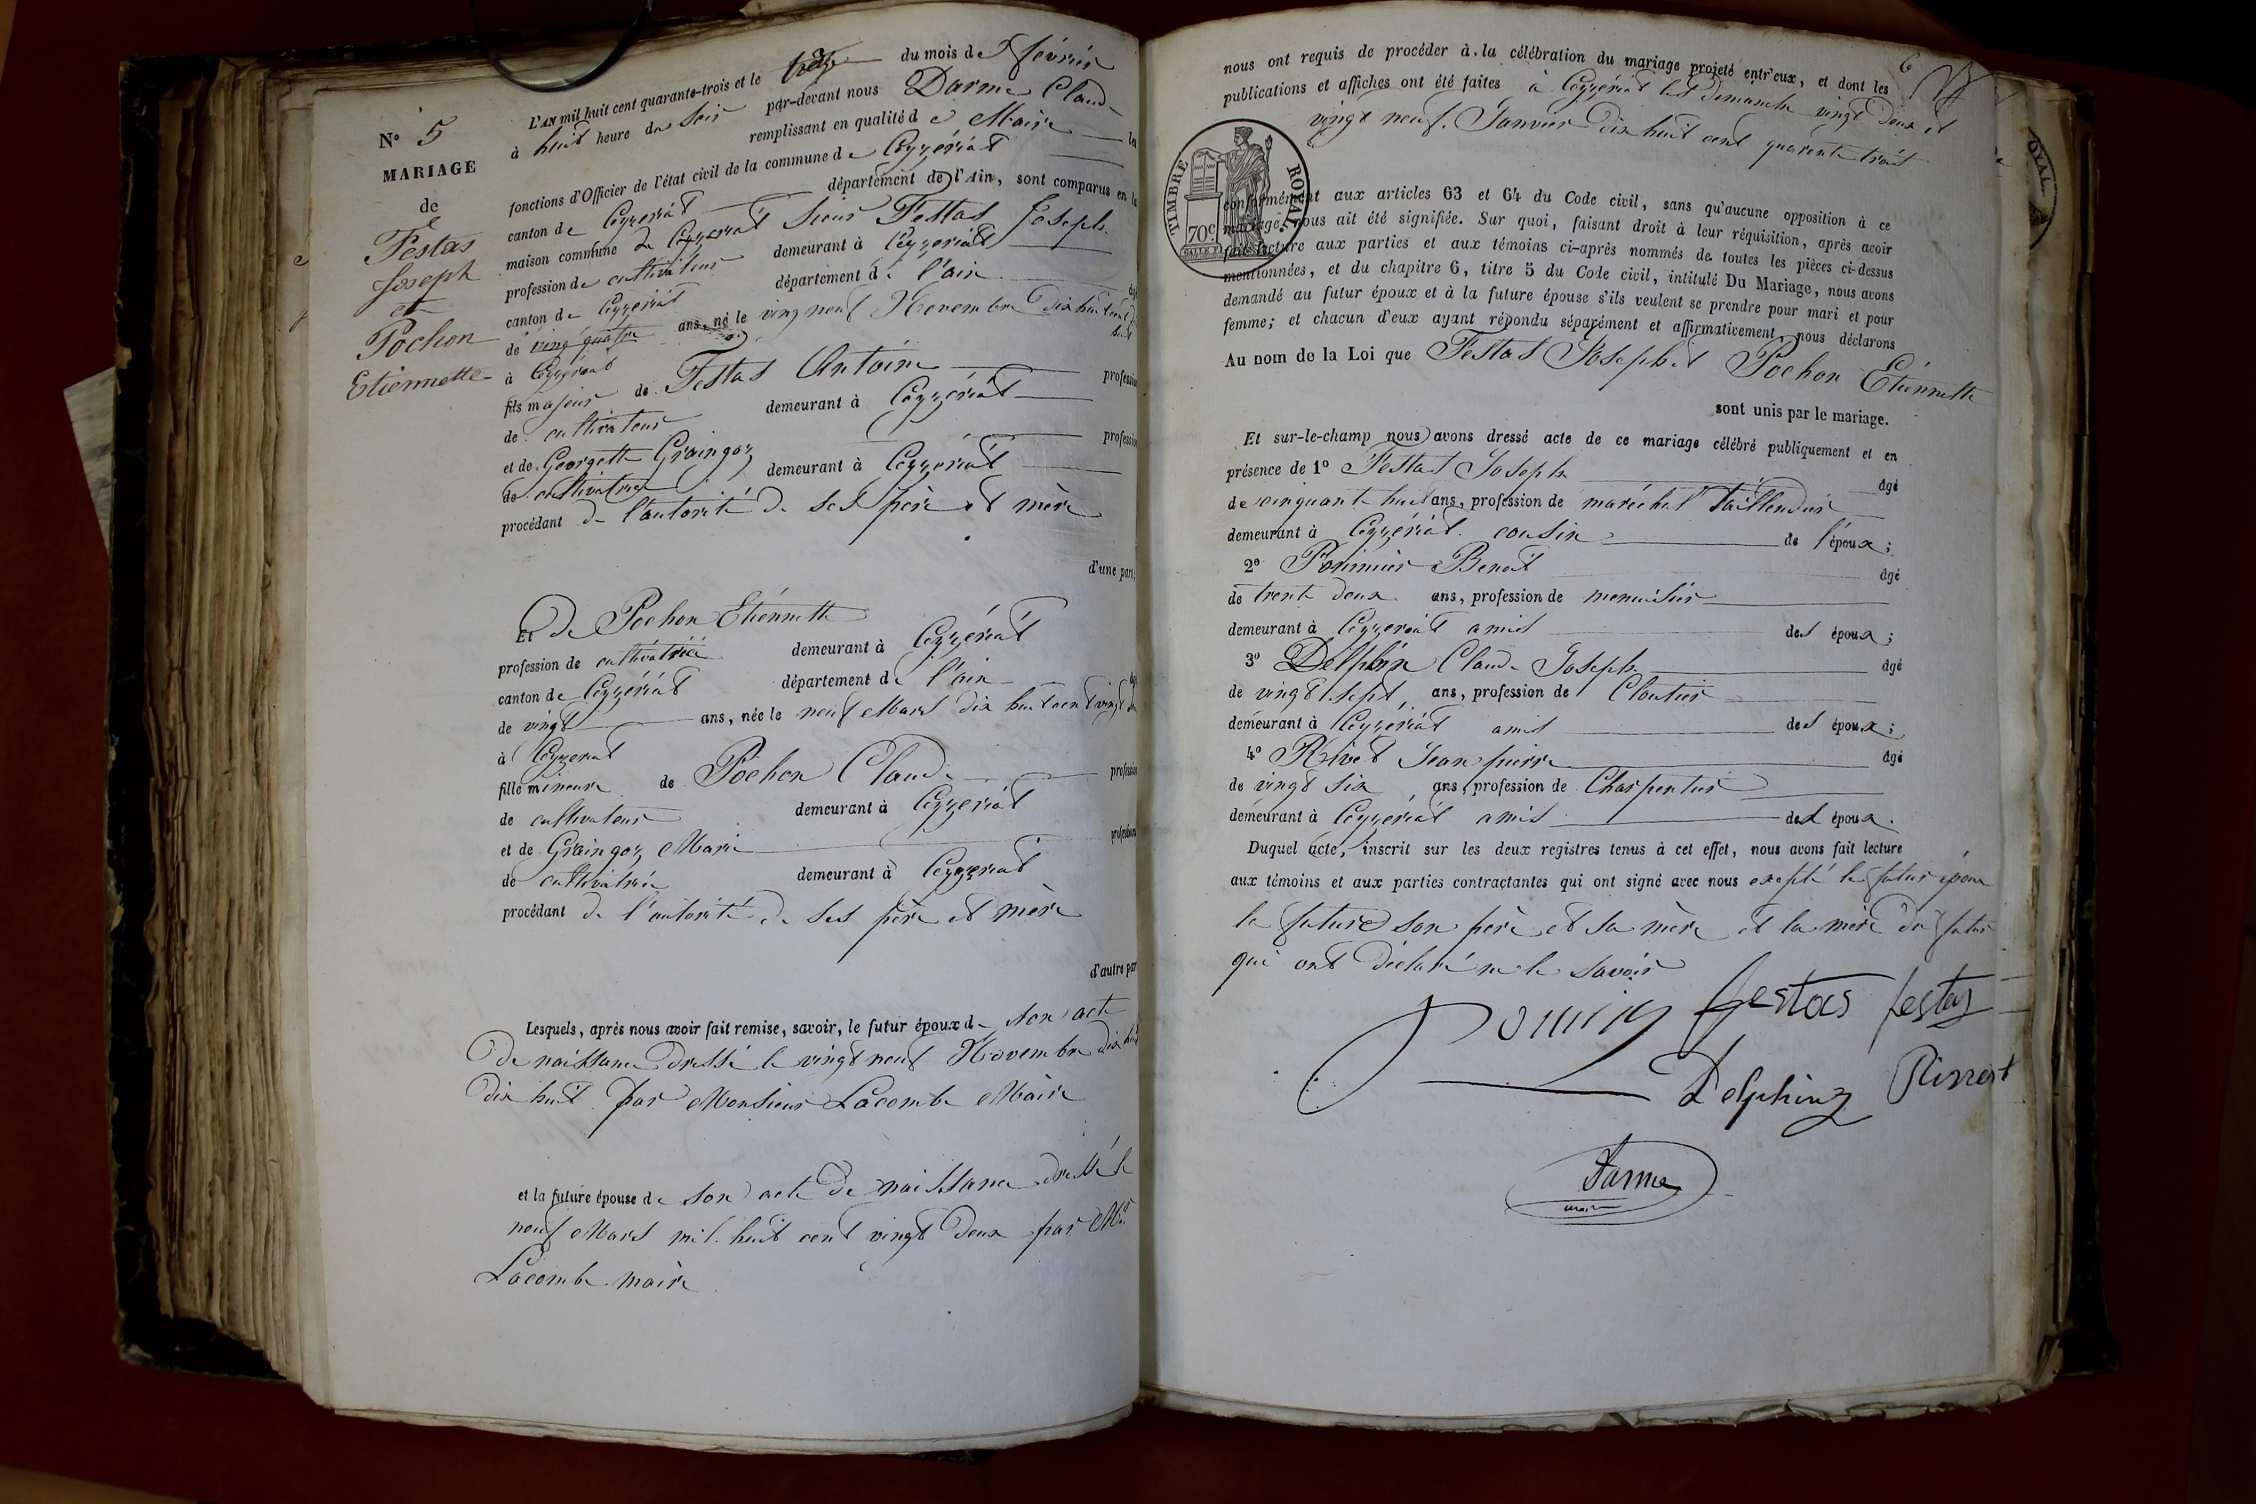 N° 5
MARIAGE
de
Festas
Joseph
et
Pochon
Etiennette
L'AN mil huit cent quarante-trois et le treize du mois de février
à huit heure du soir par-devant nous Darme Claude
remplissant en qualité de Maire les
fonctions d'Officier de l'état civil de la commune de Ceyzériat
canton de Ceyzériat département de l'Ain, sont comparus en la
maison commune de Ceyzériat Sieur Festas Joseph
profession de cultivateur demeurant à Ceyzériat
canton de Ceyzériat département de l'ain âgé
de vingt quatre ans, né le vingt neuf Novembre dix huit cent dix huit
à Ceyzériat
fils majeur de Festas Antoine profession
de cultivateur demeurant à Ceyzériat
et de Georgette Graingoz profession
de cultivatrice demeurant à Ceyzériat
procédant de l'autorité de ses père et mère
d'une part;
Et de Pochon Etiennette
profession de cultivatrice demeurant à Ceyzériat
canton de Ceyzériat département de l'ain âgée
de vingt ans, née le neuf Mars dix huit cent vingt deux
à Ceyzériat
fille mineure de Pochon Claude profession
de cultivateur demeurant à Ceyzériat
et de Graingoz Marie profession
de cultivatrice demeurant à Ceyzériat
procédant de l'autorité de ses père et mère
d'autre part
Lesquels, après nous avoir fait remise, savoir, le futur époux de son acte
de naissance dressé le vingt neuf Novembre dix huit
dix huit par Monsieur Lacombe Maire
et la future épouse de son acte de naissance dressé le
neuf Mars mil huit cent vingt deux par Mr
Lacombe maire
6
nous ont requis de procéder à la célébration du mariage projeté entr'eux, et dont les
publications et affiches ont été faites à Ceyzériat les dimanche vingt deux et
vingt neuf Janvier dix huit cent quarente trois
TIMBRE ROYAL
70c
conformément aux articles 63 et 64 du Code civil, sans qu'aucune opposition à ce
mariage nous ait été signifiée. Sur quoi, faisant droit à leur réquisition, après avoir
fait lecture aux parties et aux témoins ci-après nommés de toutes les pièces ci-dessus
mentionnées, et du chapitre 6, titre 5 du Code civil, intitulé Du Mariage, nous avons
demandé au futur époux et à la future épouse s'ils veulent se prendre pour mari et pour
femme; et chacun d'eux ayant répondu séparément et affirmativement, nous déclarons
Au nom de la Loi que Festas Joseph et Pochon Etiennette
sont unis par le mariage.
Et sur-le-champ nous avons dressé acte de ce mariage célébré publiquement et en
présence de 1° Festas Joseph âgé
de cinquante huit ans, profession de maréchal Taillendier
demeurant à Ceyzériat cousin de l'époux;
2° Benoit âgé
de trente deux ans, profession de menuisier
demeurant à Ceyzériat amis des époux;
3° Delphin Claude Joseph âgé
de vingt sept ans, profession de Cloutier
demeurant à Ceyzériat amis des époux;
4° Rivet Jean pierre âgé
de vingt six ans, profession de Charpentier
demeurant à Ceyzériat amis des époux.
Duquel acte, inscrit sur les deux registres tenus à cet effet, nous avons fait lecture
aux témoins et aux parties contractantes qui ont signé avec nous excepté le futur époux
la future son père et sa mère et la mère du futur
qui ont déclaré ne le savoir
festas festas
Delphin
Darme
maire